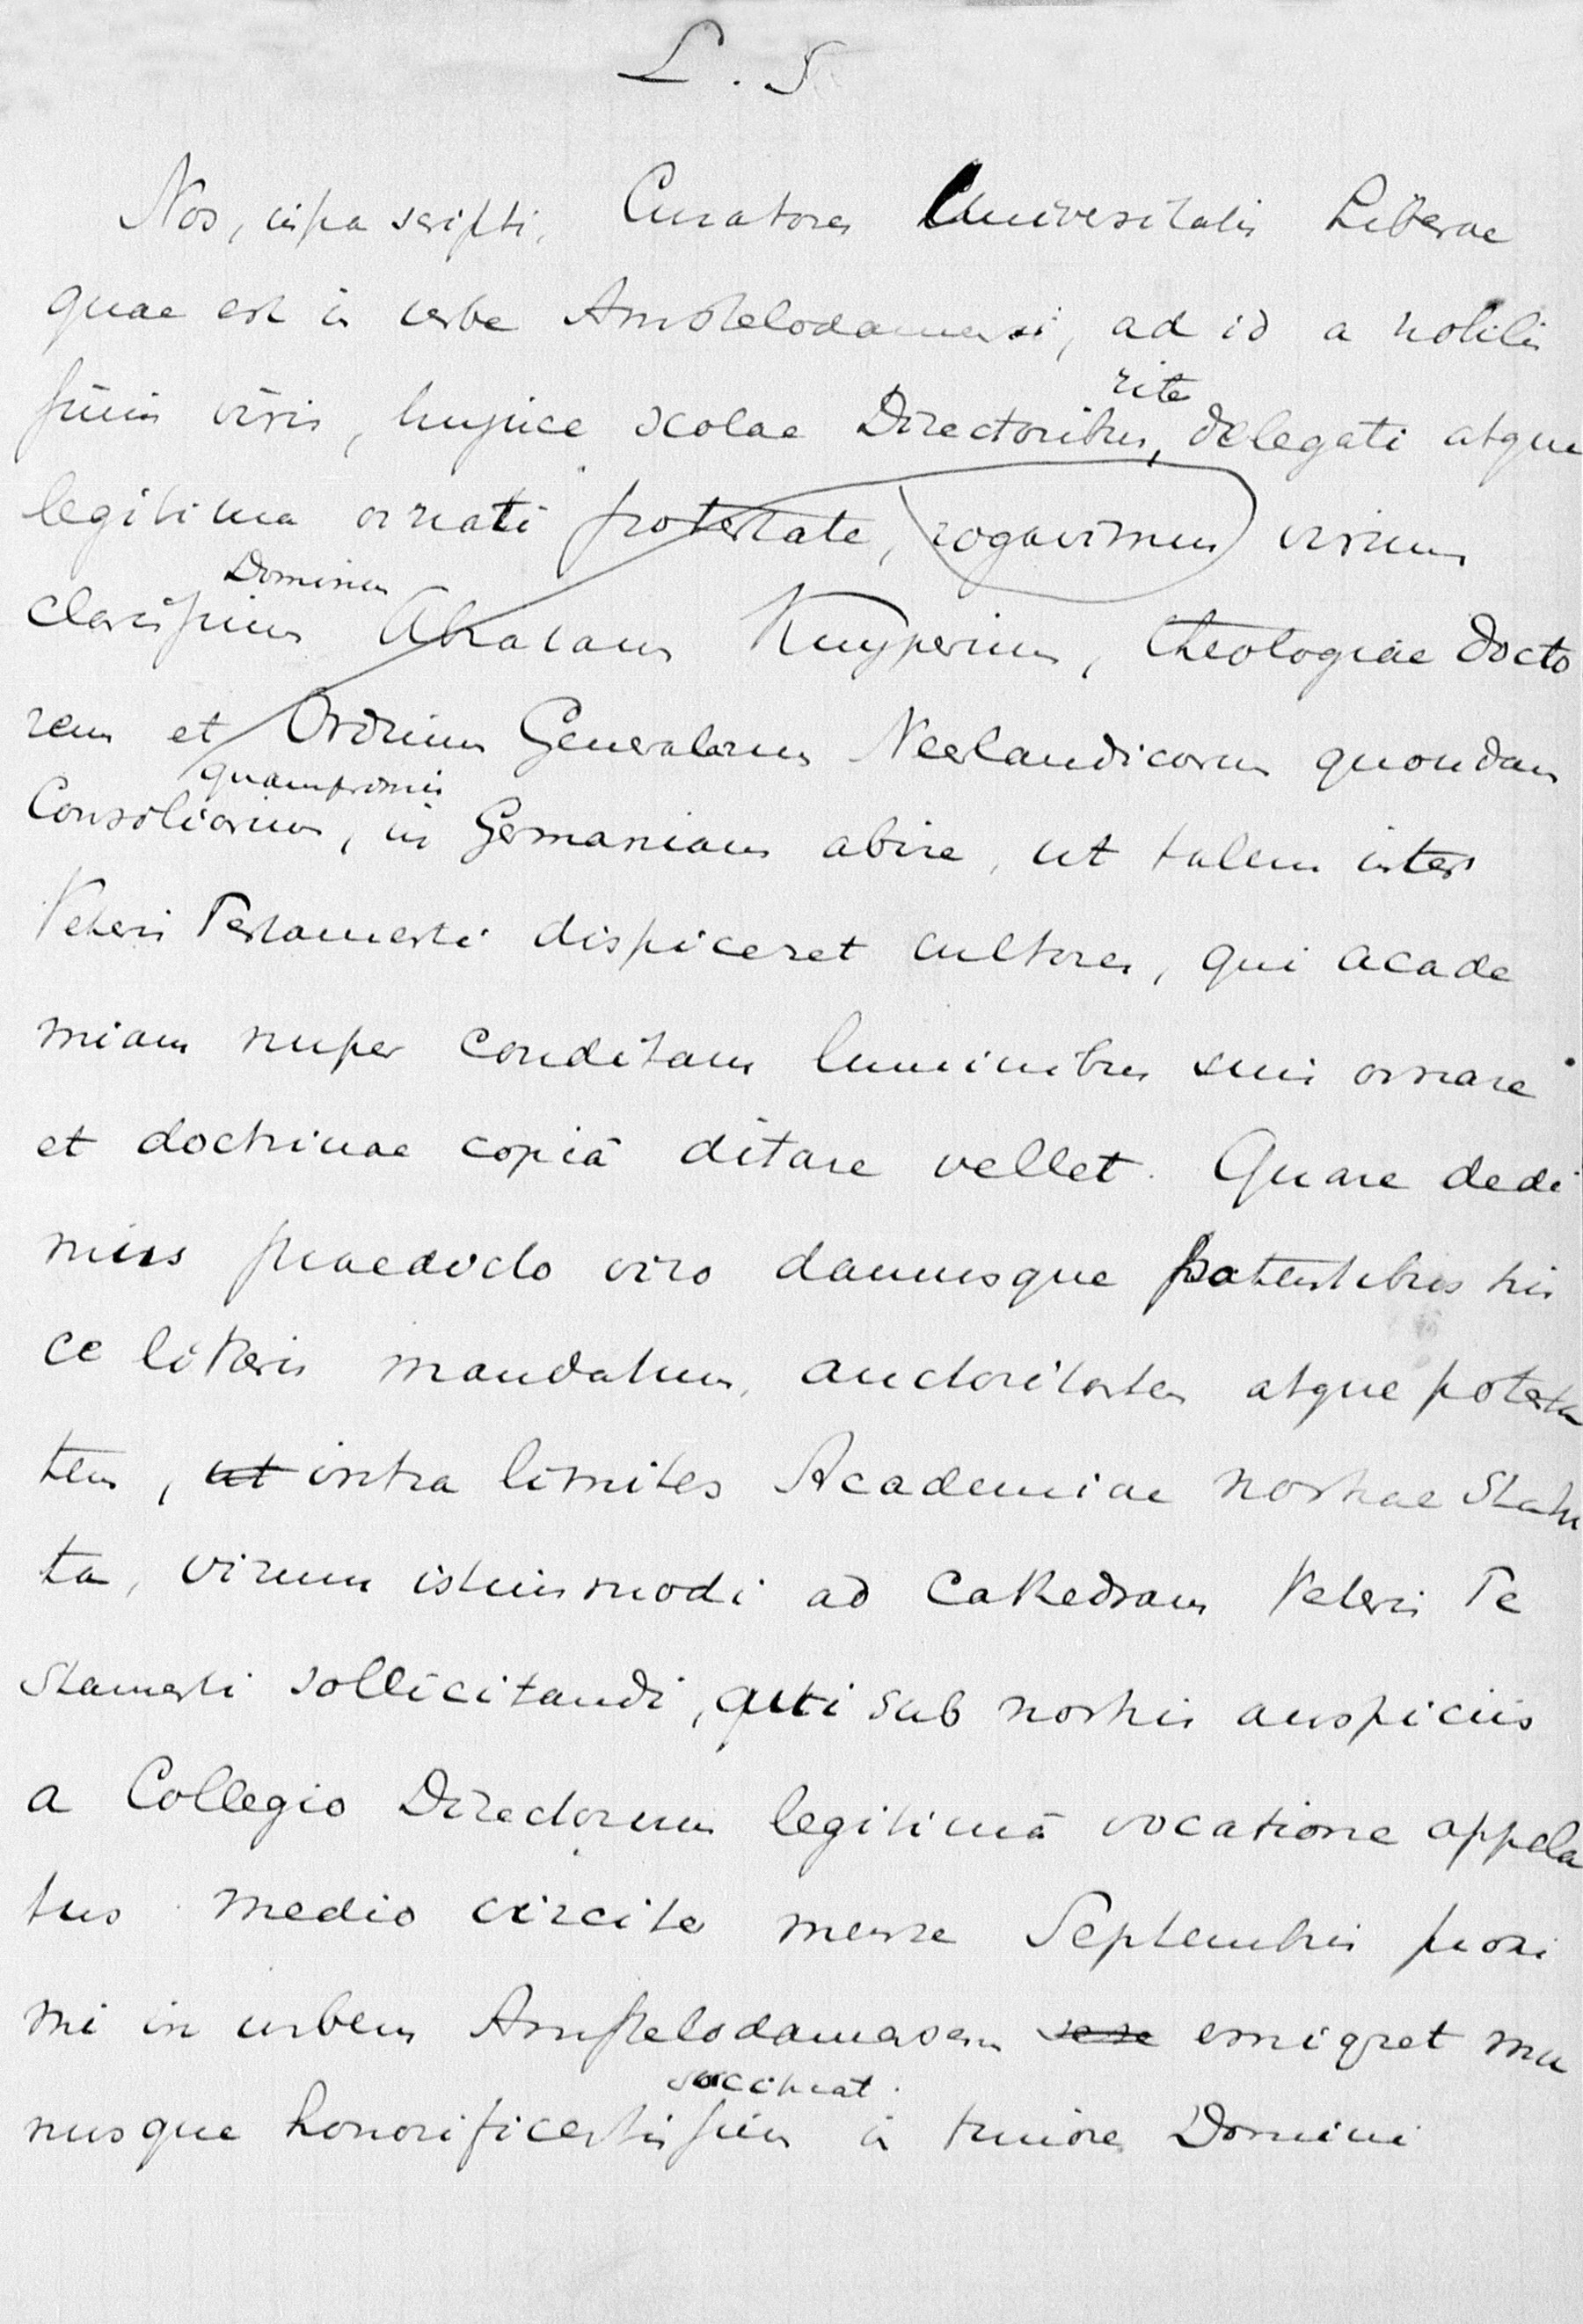 L. S.
Nos, infra scripti, Curatores Universitatis Liberae
quae est in urbe Amstelodamensi, ad id a nobilis
simis viris, hujusce scolae Directoribus, rite delegati atque
legitima ornati potestate, rogavimus virum
clarissimum Dominum Abraham Kuyperium, theologiae docto
rem et Ordinum Generalorum Neerlandicorum quondam
Consiliarium, quamprimis in Germaniam abire, ut talem inter
Veteris Testamenti dispiceret cultores, qui acade
miam nuper conditam luminibus suis ornare
et doctrinae copiâ ditare vellet. Quare dedi
mus praedicto viro damusque patentibus his
ce literis mandatum, auctoritatem atque potesta
tem, ut intra limites Academiae nostrae Statu
ta, virum istiusmodi ad Cathedram Veteris Te
stamenti sollicitandi, uti sub nostris auspiciis
a Collegio Directorum legitimâ vocatione appela
tus medio circiter mense Septembris proxi
mi in urbem Amstelodamensem sese emigret mu
nusque honorificentissimum in timore Domini